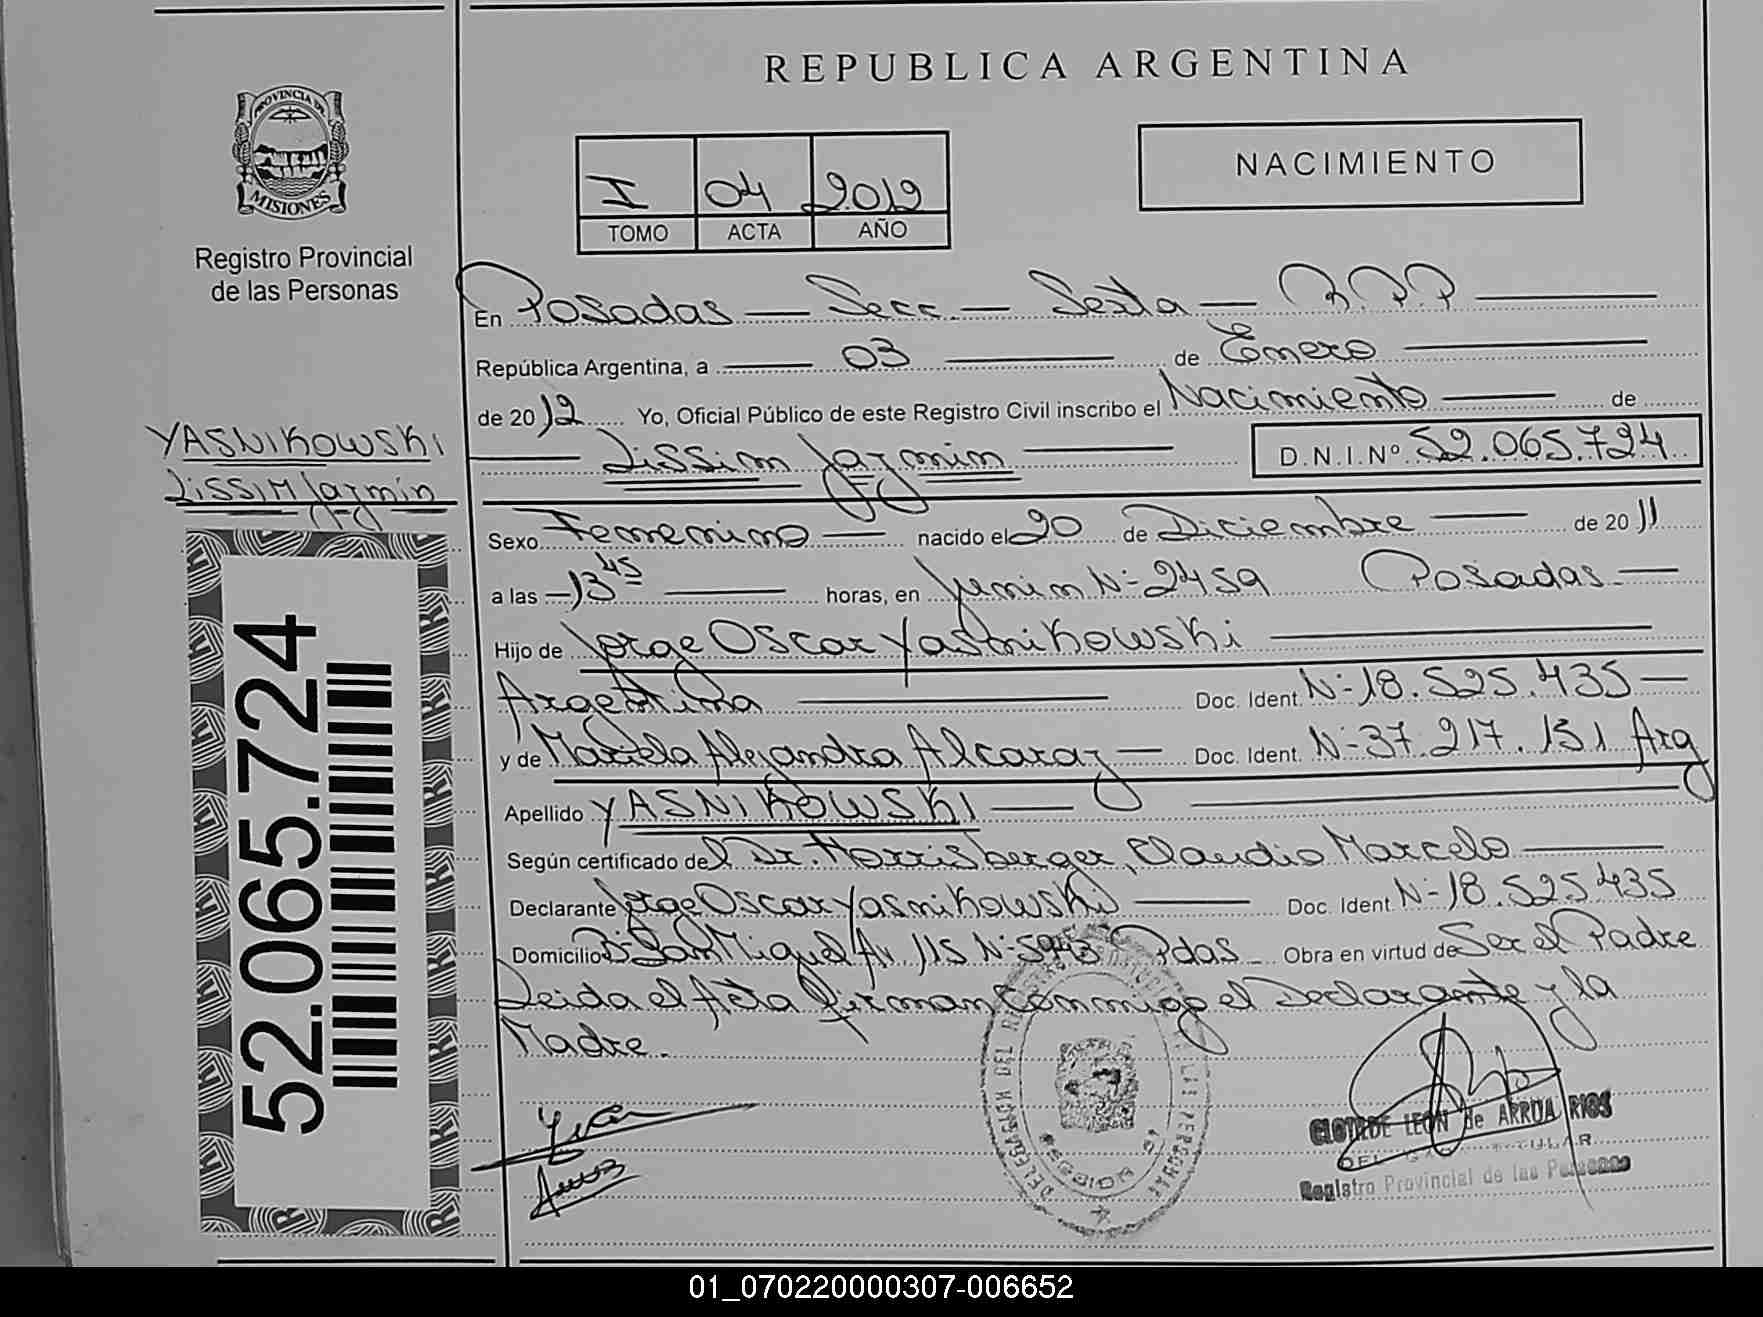 REPUBLICA ARGENTINA
PROVINCIA DE
MISIONES
Registro Provincial
de las Personas
I 04 2012
TOMO ACTA AÑO
NACIMIENTO
En Posadas — Secc. — Sexta — R.P.P
República Argentina, a 03 de Enero
de 2012 Yo, Oficial Público de este Registro Civil inscribo el Nacimiento de
Lissim Jazmin D.N.I.Nº 52.065.724
YASNIKOWSKI
Lissim Jazmin
52.065.724
Sexo Femenino nacido el 20 de Diciembre de 2011
a las 13 45 horas, en Junin Nº 2459 Posadas
Hijo de Jorge Oscar Yasnikowski
Argentina Doc. Ident. Nº 18.525.435
y de Mariela Alejandra Alcaraz Doc. Ident. Nº 37.217.151 Arg
Apellido YASNIKOWSKI
Según certificado del Dr. Morrisberger, Claudio Marcelo
Declarante Jorge Oscar Yasnikowski Doc. Ident. Nº 18.525.435
Domicilio Bº San Miguel Av. 115 Nº 5943 Pdas Obra en virtud de Ser el Padre
Leida el Acta firman Conmigo el Declarante y la
Madre.
CLOTILDE LEON de ARRUA RIOS
Registro Provincial de las Personas
01_070220000307-006652